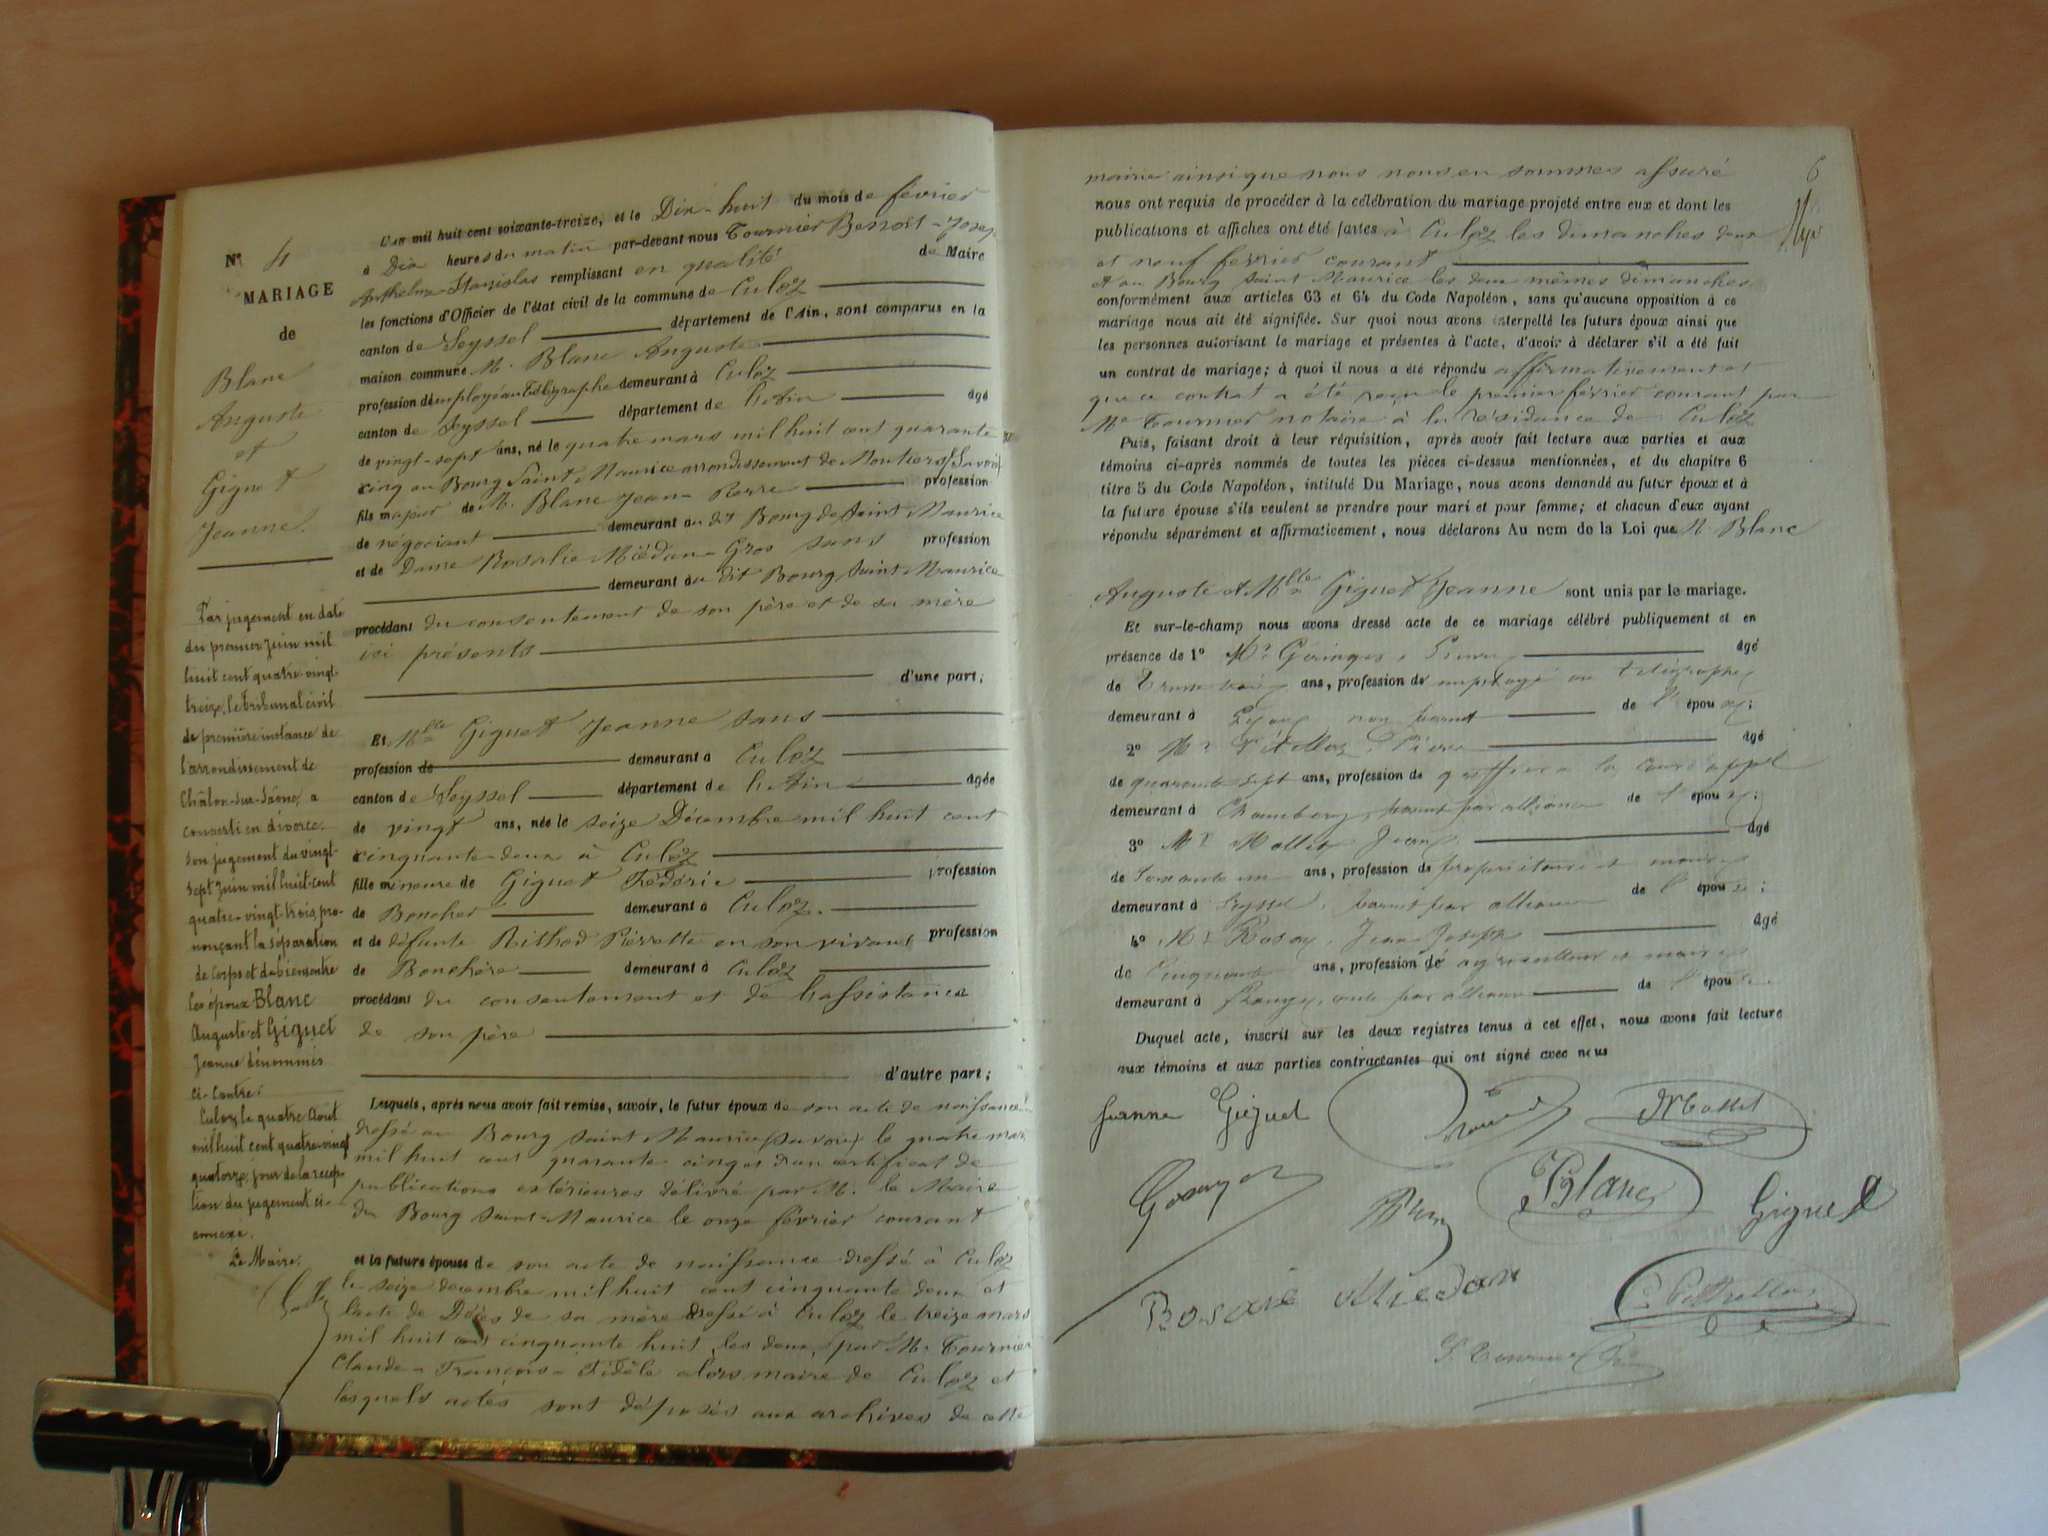 N° 4
MARIAGE
de
Blanc
Auguste
et
Giguet
Jeanne.
Par jugement en date
du premier juin mil
huit cent quatre-vingt-
treize, le tribunal civil
de première instance de
l'arrondissement de
Châlon-sur-Saône, a
converti en divorce
son jugement du vingt-
sept juin mil huit cent
quatre-vingt-trois, pro-
nonçant la séparation
de corps et de biens entre
les époux Blanc
Auguste et Giguet
Jeanne dénommés
ci-contre.
Culoz, le quatre Août
mil huit cent quatre-vingt
quatorze, jour de la récep-
tion du jugement ci-
annexé.
Le Maire.
L'an mil huit cent soixante-treize, et le Dix-huit du mois de février
à Dix heures du matin par-devant nous Tournier Benoit-Josep
Anthelme-Stanislas remplissant en qualité de Maire
les fonctions d'Officier de l'état civil de la commune de Culoz
canton de Seyssel département de l'Ain, sont comparus en la
maison commune M. Blanc Auguste
profession d'employé au Télégraphe demeurant à Culoz
canton de Seyssel département de l'Ain âgé
de vingt-sept ans, né le quatre mars mil huit cent quarante
cinq au Bourg Saint Maurice arrondissement de Moutiers (Savoie)
fils majeur de M. Blanc Jean-Pierre profession
de négociant demeurant au dit Bourg de Saint Maurice
et de Dame Rosalie Miédan-Gros sans profession
demeurant au dit Bourg Saint-Maurice
procédant du consentement de son père et de sa mère
ici présents
d'une part;
Et Mlle Giguet Jeanne sans
profession de demeurant à Culoz
canton de Seyssel département de l'Ain âgée
de vingt ans, née le seize Décembre mil huit cent
cinquante-deux à Culoz
fille mineure de Giguet Frédéric profession
de Boucher demeurant à Culoz.
et de défunte Rithod Pierrette en son vivant profession
de Bouchère demeurant à Culoz
procédant du consentement et de l'assistance
de son père
d'autre part;
Lesquels, après nous avoir fait remise, savoir, le futur époux de son acte de naissance
dressé au Bourg Saint Maurice (Savoie) le quatre mars
mil huit cent quarante cinq et d'un certificat de
publications extérieures délivré par M. le Maire
du Bourg Saint-Maurice le onze février courant
et la future épouse de son acte de naissance dressé à Culoz
le seize décembre mil huit cent cinquante deux et
l'acte de Décès de sa mère dressé à Culoz le treize mars
mil huit cent cinquante huit, les deux par Mr Tournier
Claude-François-Fidèle alors maire de Culoz et
lesquels actes sont déposés aux archives de cette
6
mairie ainsi que nous nous en sommes assuré
nous ont requis de procéder à la célébration du mariage projeté entre eux et dont les
publications et affiches ont été faites à Culoz les dimanches deux
et neuf février courant
et au Bourg Saint Maurice les deux mêmes dimanches
conformément aux articles 63 et 64 du Code Napoléon, sans qu'aucune opposition à ce
mariage nous ait été signifiée. Sur quoi nous avons interpellé les futurs époux ainsi que
les personnes autorisant le mariage et présentes à l'acte, d'avoir à déclarer s'il a été fait
un contrat de mariage; à quoi il nous a été répondu affirmativement et
que ce contrat a été reçu le premier février courant par
Me Tournier notaire à la résidance de Culoz
Puis, faisant droit à leur réquisition, après avoir fait lecture aux parties et aux
témoins ci-après nommés de toutes les pièces ci-dessus mentionnées, et du chapitre 6
titre 5 du Code Napoléon, intitulé Du Mariage, nous avons demandé au futur époux et à
la future épouse s'ils veulent se prendre pour mari et pour femme; et chacun d'eux ayant
répondu séparément et affirmativement, nous déclarons Au nom de la Loi que M. Blanc
Auguste et Mlle Giguet Jeanne sont unis par le mariage.
Et sur-le-champ nous avons dressé acte de ce mariage célébré publiquement et en
présence de 1° Mr âgé
de Trente trois ans, profession de employé au télégraphe
demeurant à Lyon, non parent de l'époux;
2° Mr Pierre âgé
de quarante sept ans, profession de greffier à la cour d'appel
demeurant à Chambéry, parent par alliance de l'époux;
3° Mr Mollet Jean âgé
de Soixante un ans, profession de propriétaire et
demeurant à Seyssel, parent par alliance de l'épouse;
4° Mr Rosay, Jean Joseph âgé
de Cinquante ans, profession de agriculteur et
demeurant à oncle par alliance de l'épouse
Duquel acte, inscrit sur les deux registres tenus à cet effet, nous avons fait lecture
aux témoins et aux parties contractantes qui ont signé avec nous
Jeanne Giguet
JMollet
Blanc
Giguet
Rosalie Miedan